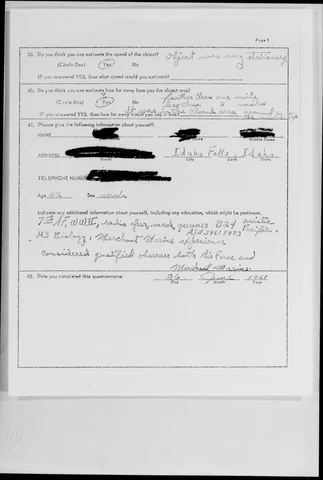 Page 5
39. Do you think you can estimate the speed of the object?
(Circle One) Yes No
Object was very stationary
IF you answered YES, then what speed would you estimate?
40. Do you think you can estimate how far away from you the object was?
(Circle One) Yes No
farther than one mile
less than 3 miles
IF you answered YES, then how far away would you say it was?
It was in the clouds area
41. Please give the following information about yourself:
NAME
Middle Name
ADDRESS
Idaho Falls Idaho
Street City Zone State
TELEPHONE NUMBER
Age Sex male
Indicate any additional information about yourself, including any education, which might be pertinent.
7th AF, WWII, radio oper, mech gunner B24
Pacific
MS Biology + Merchant Marine experience
Considered qualified observer both Air Force and
Merchant Marine
42. Date you completed this questionnaire:
26 June
Day Month Year